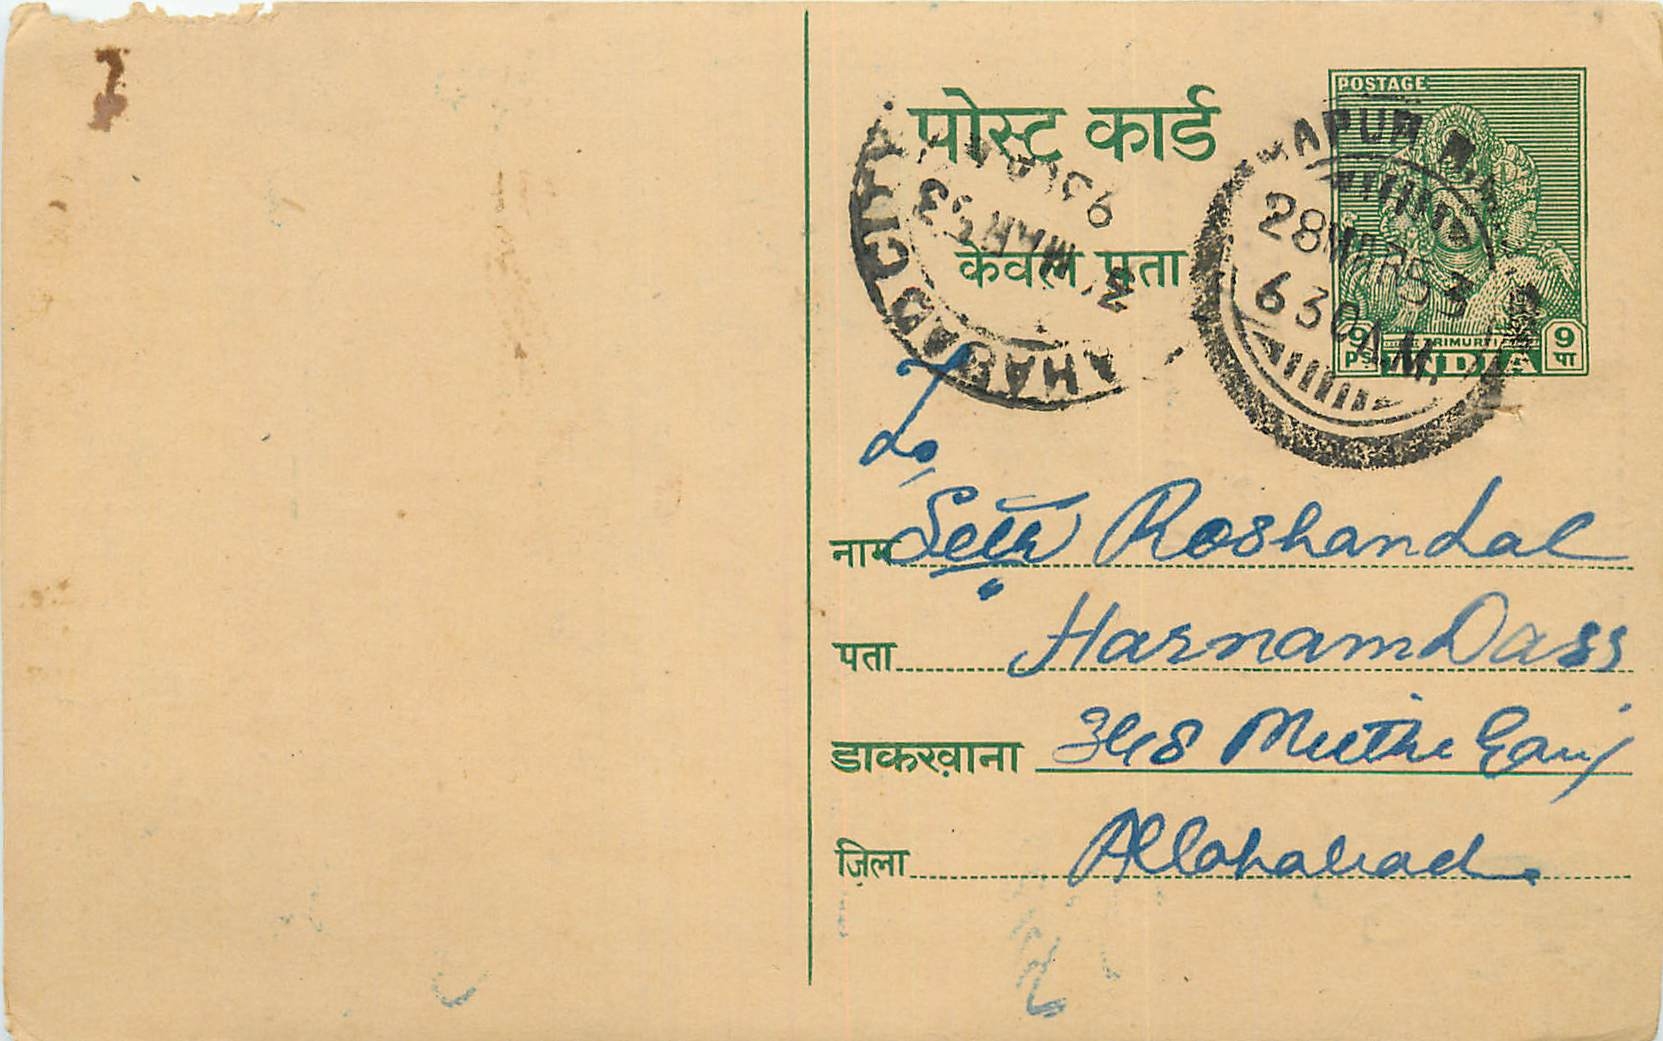 पोस्ट कार्ड
केवल पता
POSTAGE
TRIMURTI
9 PS INDIA 9 पा
28 MAR 53
6 30 A.M.
MAR 53
To,
नाम Seth Roshan Lal
पता Harnam Dass
डाकख़ाना 348 Mutthi Ganj
ज़िला Allahabad